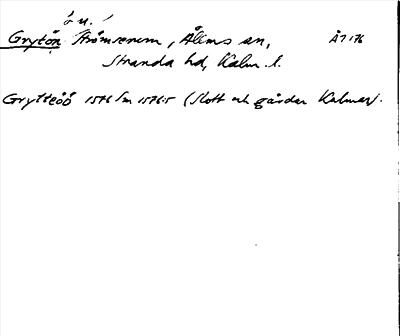 Grytön Strömserum, Ålems sn, Å7:76
Stranda hd, Kalm. l.
Grytteöö 1576 Sm 1576:5 (Slott och gårdar Kalmar).